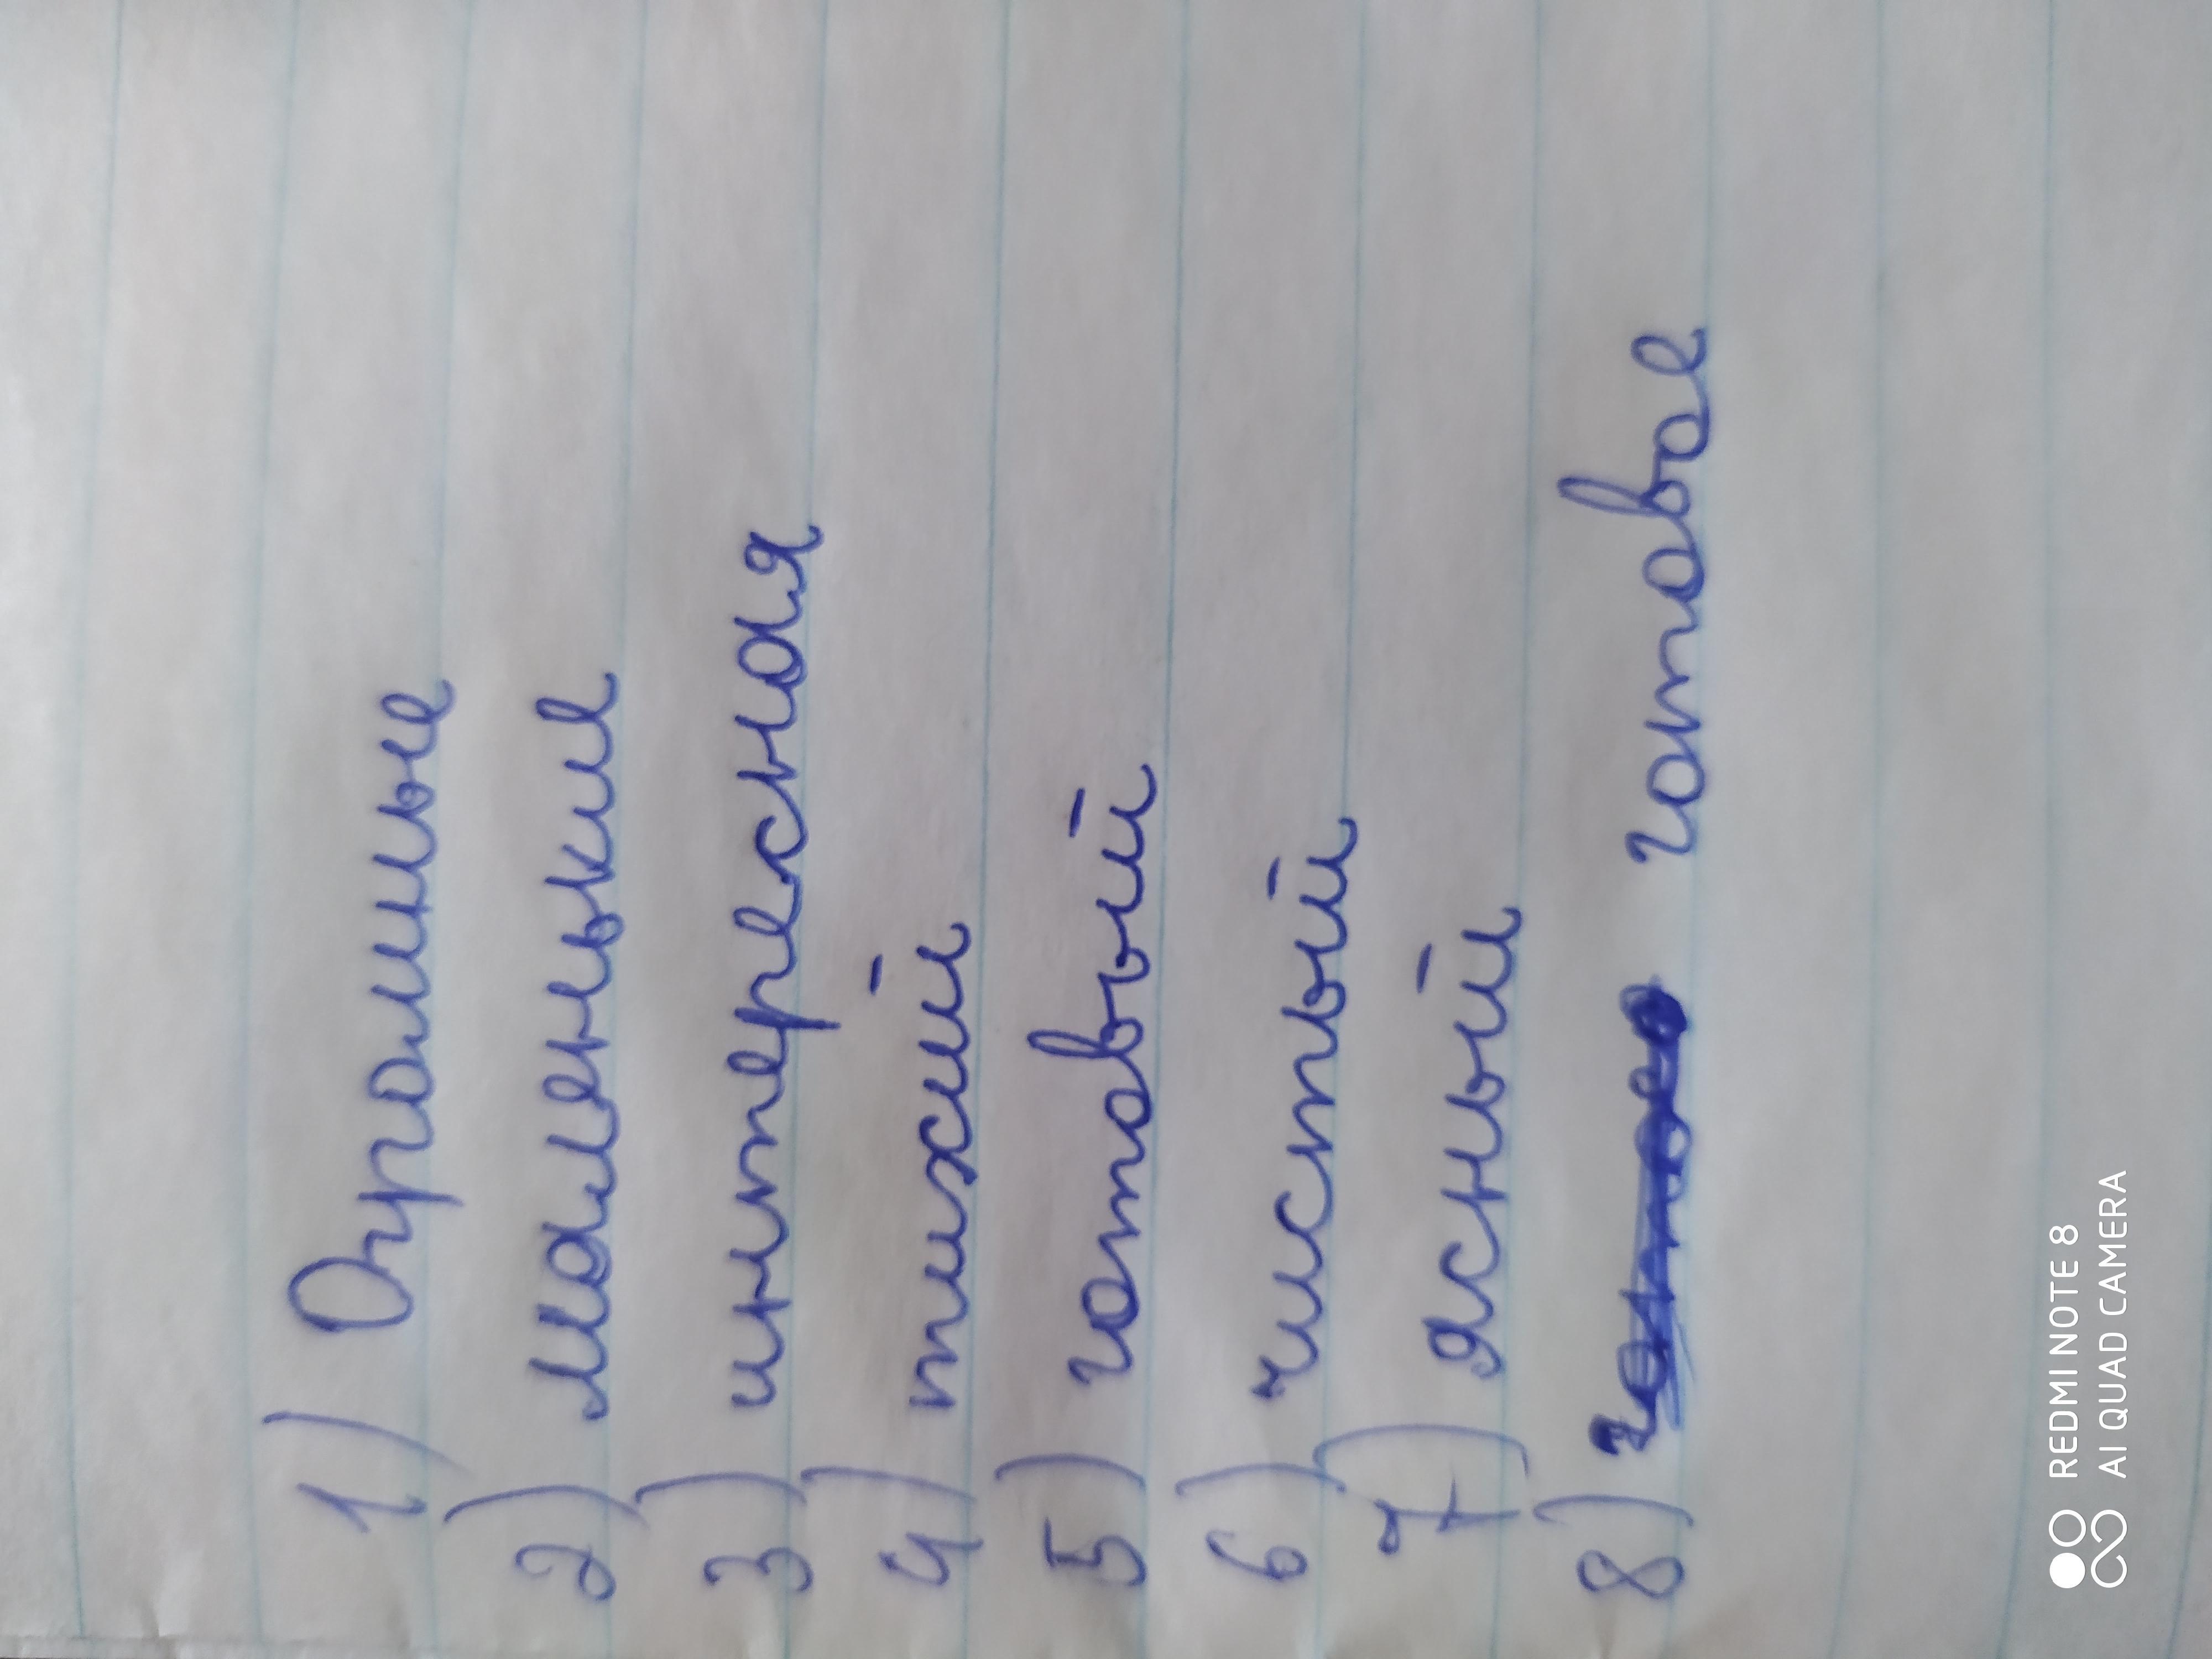 1) Огромные
2) маленькие
3) интересная
4) тихий
5) готовый
6) чистый
7) ясный
8) готовое
REDMI NOTE 8
AI QUAD CAMERA